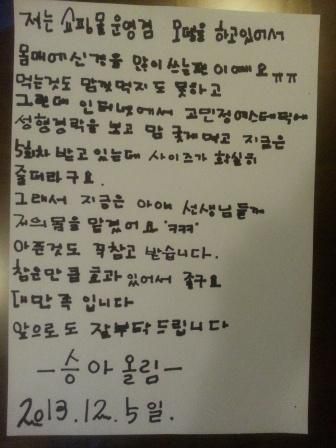 저는 쇼핑몰 운영겸 모델을 하고있어서
몸매에 신경을 많이 쓰는편 이예요 ㅠㅠ
먹는것도 맘껏먹지도 못하고
그런데 인터넷에서 고민정에스테틱에
성형경락을 보고 맘 굳게먹고 지금은
5회차 받고 있는데 사이즈가 확실히
줄더라구요.
그래서 지금은 아예 선생님들께
저의 몸을 맡겼어요 "ㅋㅋㅋ"
아픈것도 꾹참고 받습니다.
참은만큼 효과 있어서 좋구요
대만족 입니다
앞으로도 잘부탁드립니다
-승아올림-
2013.12.5일.